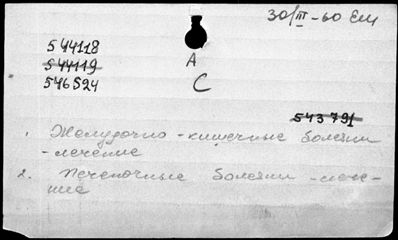 30/III-60 Ем
544118
544119
546524
А
С
543791
1. Желудочно-кишечные болезни
-лечение
2. Печеночные болезни-лече-
ние